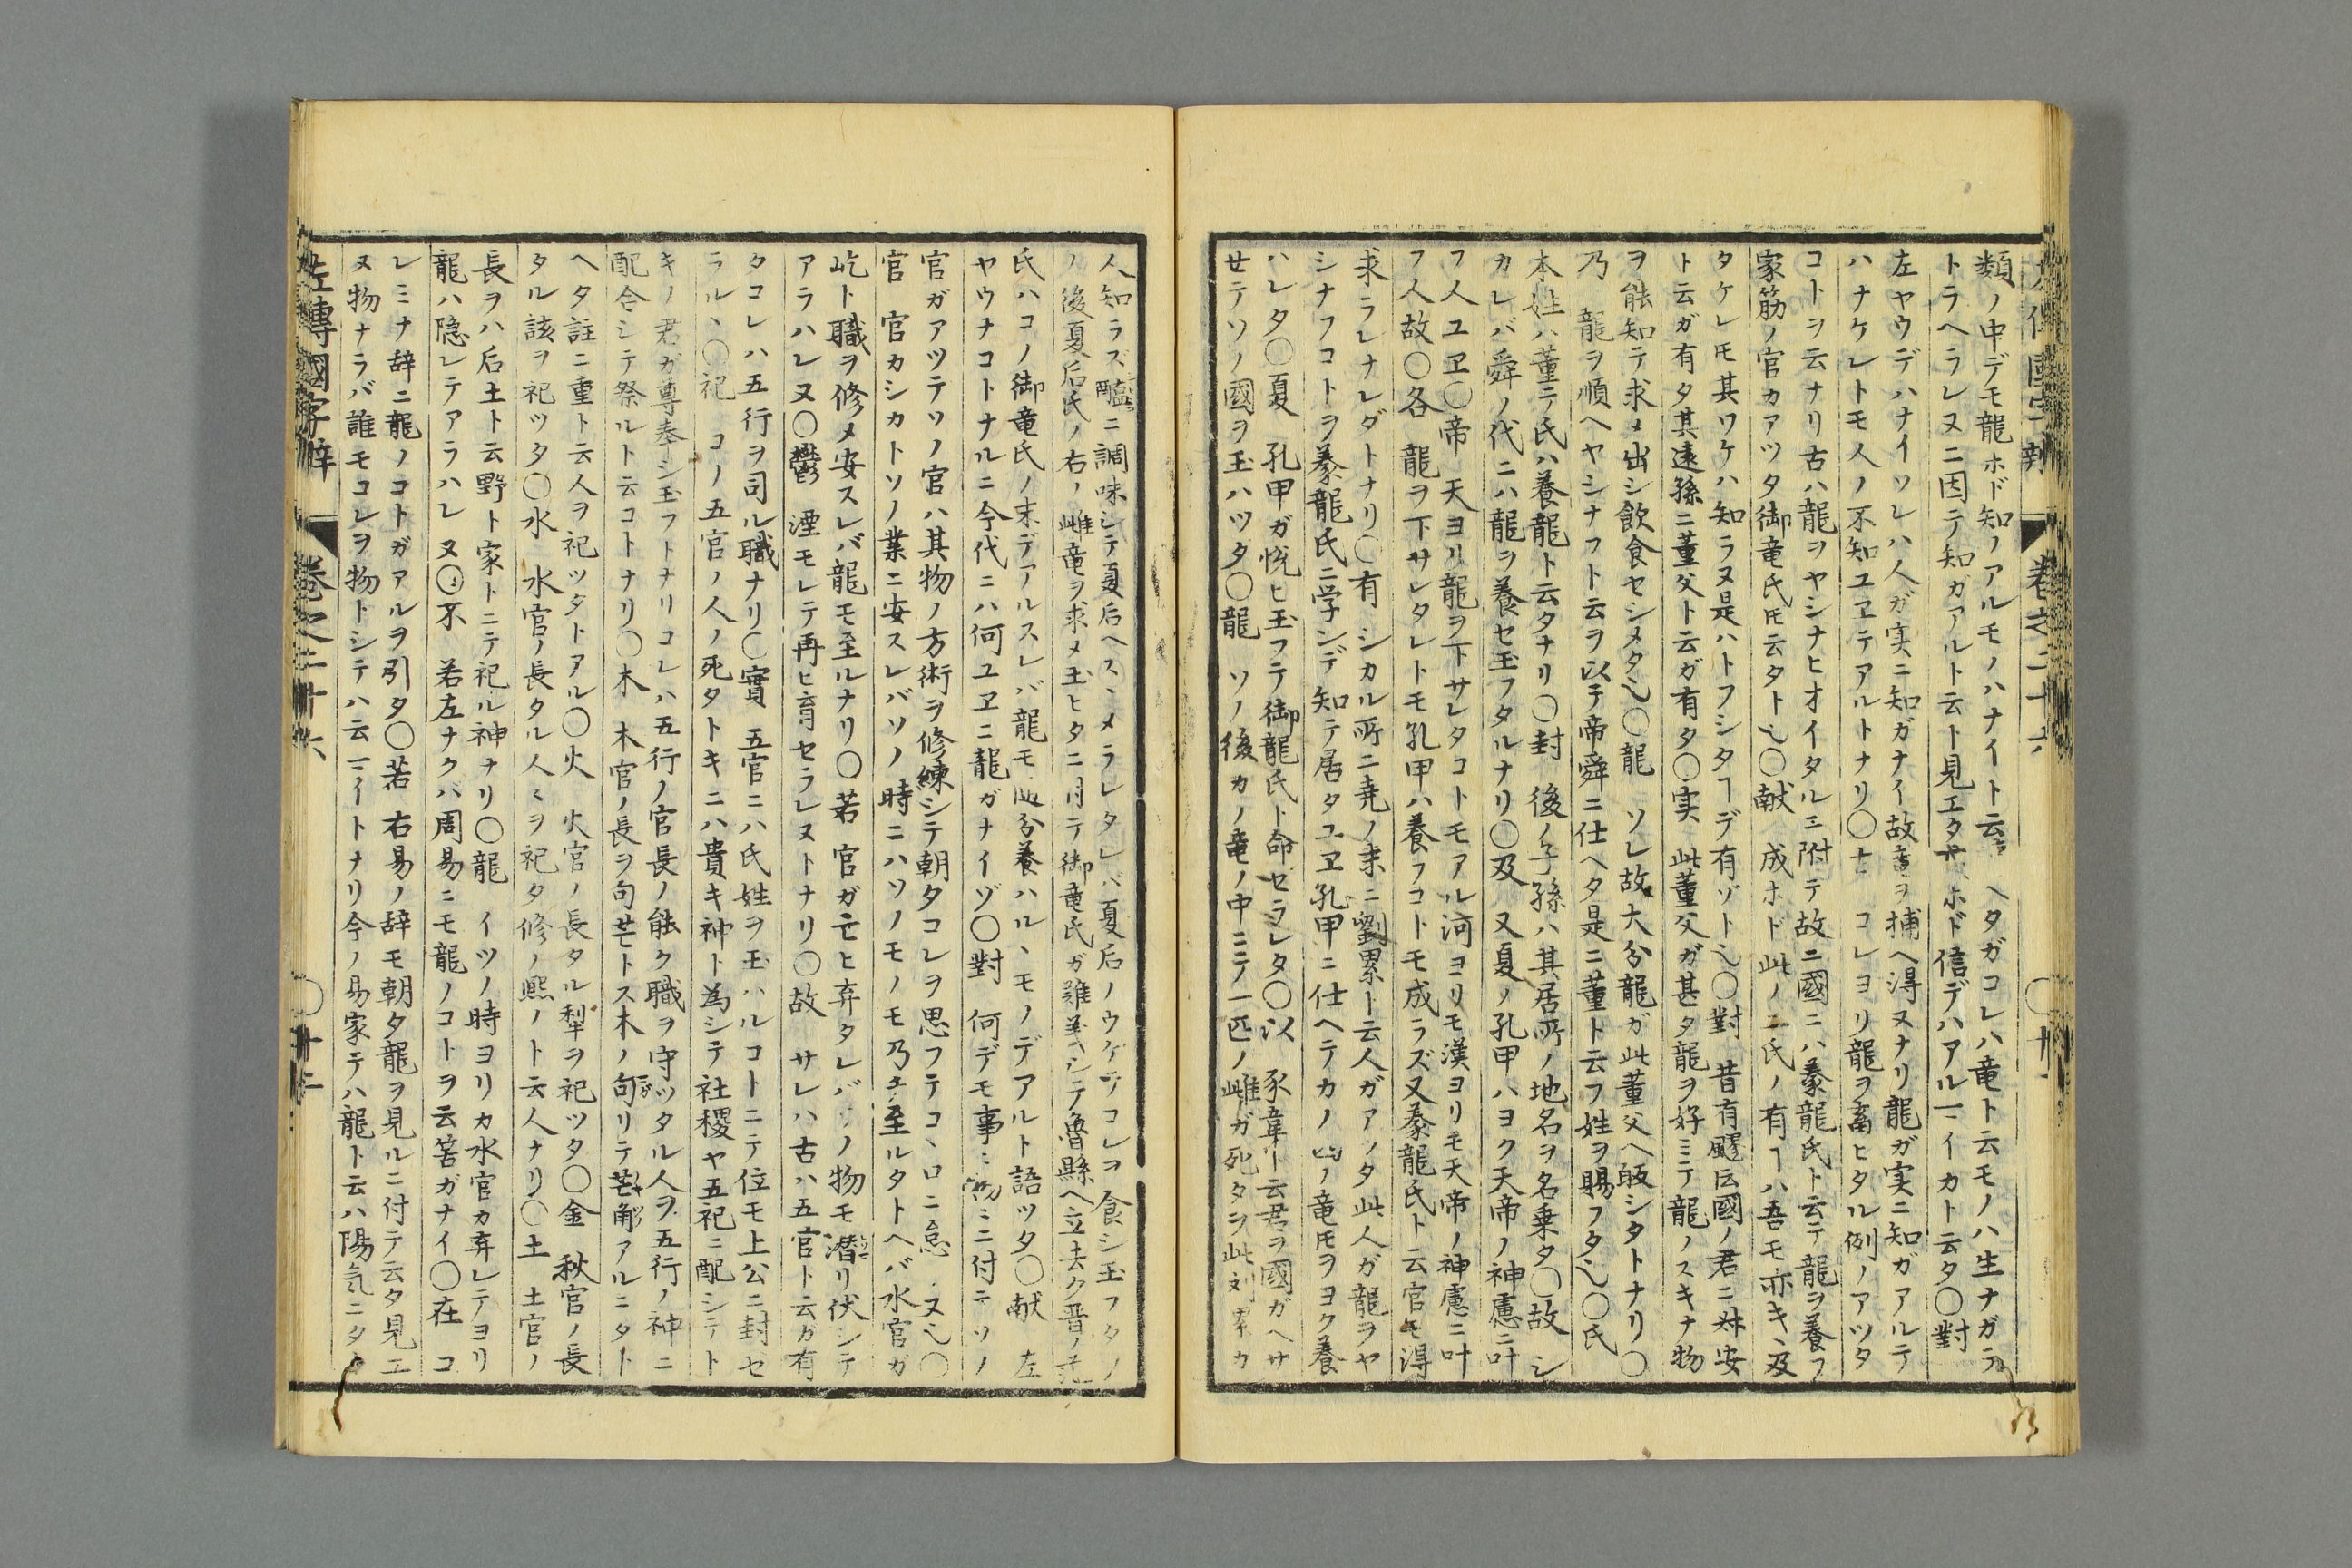 類ノ中デモ龍ホド知ノアルモノハナイト云 ヘタガコレハ竜ト云モノハ生ナガラ
トラヘラレヌニ因テ知ガアルト云ト見エタ ホド信デハアル イカト云タ〇對
左ヤウデハナイソレハ人ガ実ニ知ガナイ故竜ヲ捕ヘ得ヌナリ龍ガ実ニ知ガアルテ
ハナケレトモ人ノ不知ユエテアルトナリ〇 コレヨリ龍ヲ畜ヒタル例ノアツタ
コトヲ云ナリ古ハ龍ヲヤシナヒオイタル 附テ故ニ國ニハ豢龍氏ト云テ龍ヲ養フ
家筋ノ官カアツタ御竜氏𪜈云タト〇献 成ホド此ノ二氏ノ有ヿハ吾モ亦キヽ及
タケレ𪜈其ワケハ知ラヌ是ハトフシタヿデ有ゾト〇對 昔有飂 國ノ君ニ叔安
ト云ガ有タ其遠孫ニ董父ト云ガ有タ〇実 此董父ガ甚タ龍ヲ好ミテ龍ノスキナ物
ヲ能知テ求メ出シ飲食セシメタ〇龍 ソレ故大分龍ガ此董父ヘ皈シタトナリ〇
乃 龍ヲ順ヘヤシナフト云ヲ以テ帝舜ニ仕ヘタ是ニ董ト云フ姓ヲ賜フタ〇氏
本姓ハ董ニテ氏ハ養龍ト云タナリ〇封 後ノ子孫ハ其居所ノ地名ヲ名乗タ〇故 シ
カレバ舜ノ代ニハ龍ヲ養セ玉フタルナリ〇及 又夏ノ孔甲ハヨク天帝ノ神慮ニ叶
フ人ユヱ〇帝 天ヨリ龍ヲ下サレタコトモアル河ヨリモ漢ヨリモ天帝ノ神慮ニ叶
フ人故〇各 龍ヲ下サレタレトモ孔甲ハ養フコトモ成ラズ又豢龍氏ト云官モ得
求ラレナンダトナリ〇有 シカル所ニ尭ノ末ニ劉累ト云人ガアツタ此人ガ龍ヲヤ
シナフコトヲ豢龍氏ニ学ンデ知テ居タユヱ孔甲ニ仕ヘテカノ ノ竜𪜈ヲヨク養
ハレタ〇夏 孔甲ガ悦ヒ玉フテ御龍氏ト命セラレタ〇以 豕韋ト云君ヲ國ガヘサ
セテソノ國ヲ玉ハツタ〇龍 ソノ後カノ竜ノ中ニテ一匹ノ雌ガ死タヲ此刘累カ
人知ラズ醢ニ調味シテ夏后ヘスヽメラレタレバ夏后ノウケテコレヲ食シ玉フタノ
ノ後夏后氏ノ右ノ雌竜ヲ求メ玉ヒタニ付テ御竜氏ガ難義シテ魯縣ヘ立去ク晋ノ范
氏ハコノ御竜氏ノ末デアルスレバ龍モ随分養ハルヽモノデアルト語ツタ〇献 左
ヤウナコトナルニ今代ニハ何ユヱニ龍ガナイゾ〇對 何デモ事 物 ニ付テソノ
官ガアツテソノ官ハ其物ノ方術ヲ修練シテ朝タコレヲ思フテコヽロニ忘 ヌ〇
官 官カシカトソノ業ニ安スレバソノ時ニハソノモノモ乃 至ルタトヘバ水官ガ
屹ト職ヲ修メ安スレバ龍モ至ルナリ〇若 官ガ亡ヒ弃タレバソノ物モ潜リ伏シテ
アラハレヌ〇鬱 湮モレテ再ヒ育セラレヌトナリ〇故 サレハ古ハ五官ト云ガ有
タコレハ五行ヲ司ル職ナリ〇實 五官ニハ氏姓ヲ玉ハルコトニテ位モ上公ニ封セ
ラルヽ〇祀 コノ五官ノ人ノ死タトキニハ貴キ神ト為シテ社稷ヤ五祀ニ配シテト
キノ君ガ尊奉シ玉フトナリコレハ五行ノ官長ノ能ク職ヲ守ツタル人ヲ五行ノ神ニ
配合シテ祭ルト云コトナリ〇木 木官ノ長ヲ句芒トス木ノ句リテ芒角アルニタト
ヘタ註ニ重ト云人ヲ祀ツタトアル〇火 火官ノ長タル犂ヲ祀ツタ〇金 秋官ノ長
タル該ヲ祀ツタ〇水 水官ノ長タル人〻ヲ祀タ修ノ熙ノト云人ナリ〇土 土官ノ
長ヲハ后土ト云野ト家トニテ祀ル神ナリ〇龍 イツノ時ヨリカ水官カ弃レテヨリ
龍ハ隠レテアラハレヌ〇不 若左ナクハ周易ニモ龍ノコトヲ云筈ガナイ〇在 コ
レミナ辞ニ龍ノコトガアルヲ引タ〇若 右易ノ辞モ朝夕龍ヲ見ルニ付テ云タ見エ
ヌ物ナラバ誰モコレヲ物トシテハ云 イトナリ今ノ易家テハ龍ト云ハ陽気ニタ
左傳國字辯 巻之二十六 〇十二